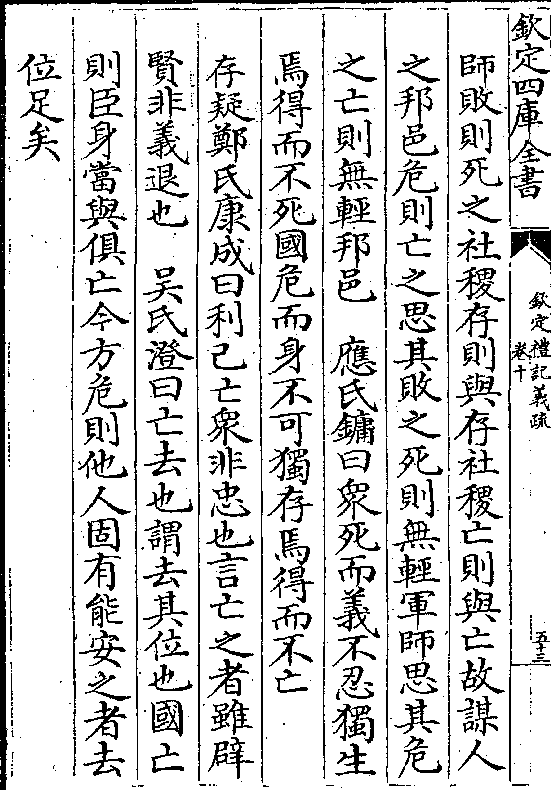 欽定四庫全書
欽定禮記義疏
卷十
五十三
師敗則死之社稷存則與存社稷亡則與亡故謀人
之邦邑危則亡之思其敗之死則無輕軍師思其危
之亡則無輕邦邑　應氏鏞曰衆死而義不忍獨生
焉得而不死國危而身不可獨存焉得而不亡
存疑鄭氏康成曰利己亡衆非忠也言亡之者雖辟
賢非義退也　吴氏澄曰亡去也謂去其位也國亡
則臣身當與俱亡今方危則他人固有能安之者去
位足矣